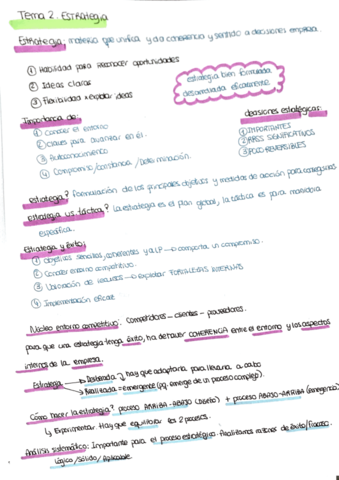 Tema 2. Estrategia
Estrategia: materia que unifica y da coherencia y sentido a decisiones empresa.
① Habilidad para reconocer oportunidades
② Ideas claras
③ Flexibilidad x explotar ideas
estrategia bien formulada
desarrollada eficazmente.
Importancia de:
① Conocer el entorno
② Claves para avanzar en él.
③ Autoconocimiento
④ Compromiso/constancia/Determinación.
decisiones estratégicas:
① IMPORTANTES
② RRSS SIGNIFICATIVOS
③ POCO REVERSIBLES
estrategia? Formulación de los principales objetivos y medidas de acción para conseguirlos
estrategia vs. táctica? la estrategia es el plan global, la táctica es para maniobra
específica.
Estrategia y éxito:
① Objetivos sencillos, coherentes y a LP → comporta un compromiso.
② Conocer entorno competitivo.
③ Valoración de recursos → explotar FORTALEZAS INTERNAS
④ Implementación eficaz
Núcleo entorno competitivo: Competidores - clientes - proveedores.
para que una estrategia tenga éxito, ha de haver COHERENCIA entre el entorno y los aspectos
internos de la empresa.
Estrategia → Deseada → hay que adaptarla para llevarla a cabo
→ Realizada = Emergente (pq. emerge de un proceso complejo).
Cómo hacer la estrategia? proceso ARRIBA-ABAJO (diseño) + proceso ABAJO-ARRIBA (emergencia)
↳ Experimentar. Hay que equilibrar los 2 procesos.
Análisis sistemático: Importante para el proceso estratégico. Analizamos razones de éxito/fracaso.
Lógico/Sólido/Aplicable.